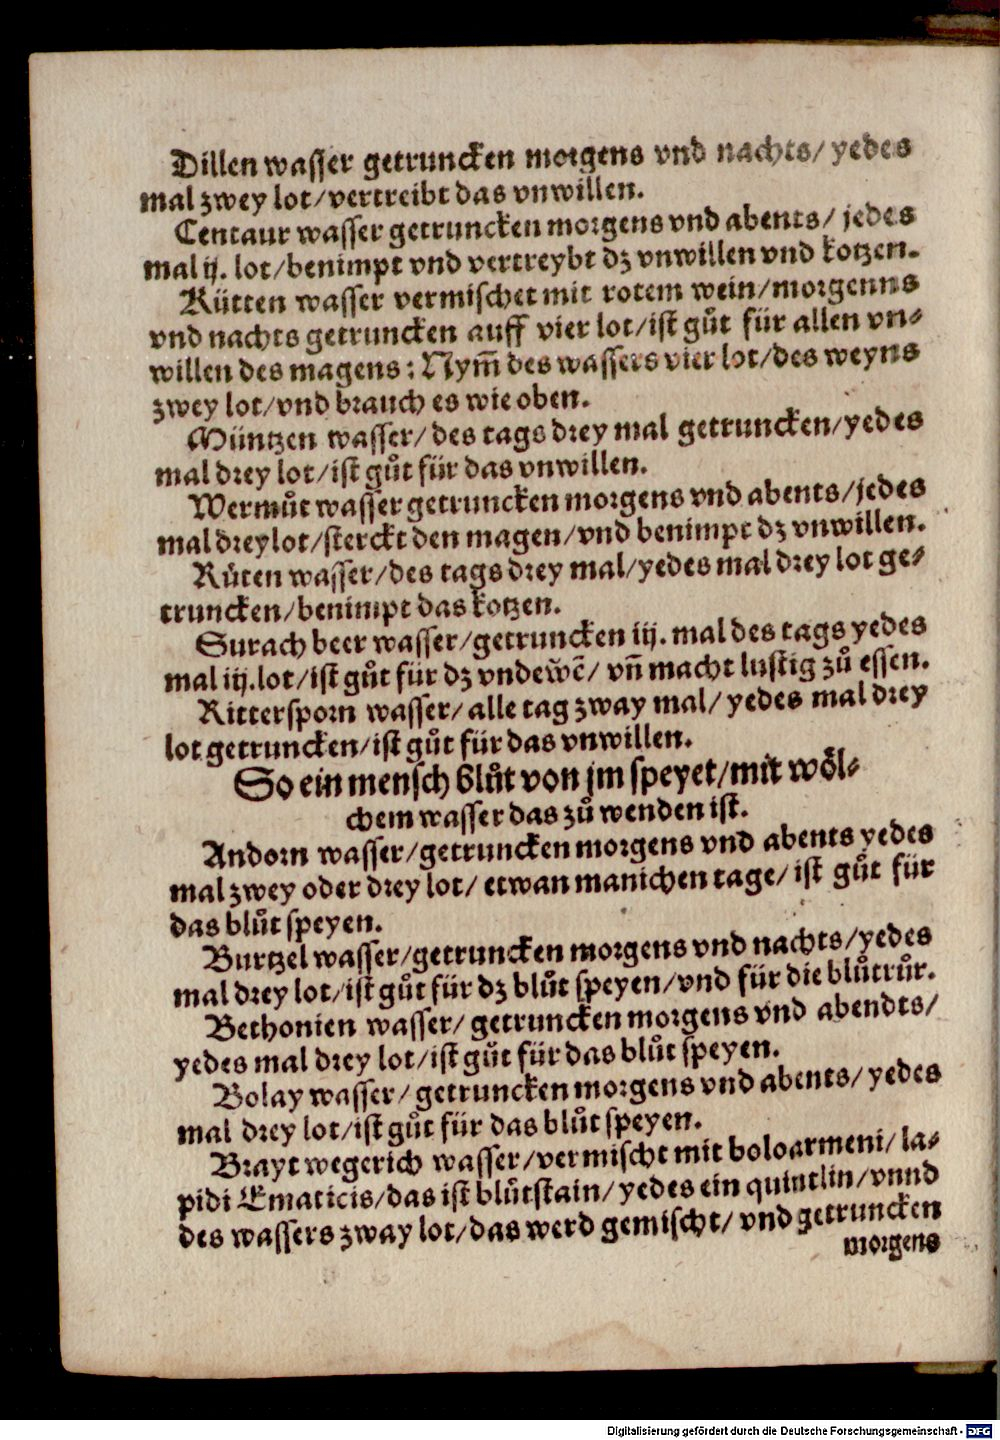 Dillen wasser getruncken morgens vnd nachts/ yedes
mal zwey lot/vertreibt das vnwillen.
Centaur wasser getruncken morgens vnd abents/ jedes
mal ij. lot/benimpt vnd vertreybt dz vnwillen vnd kotzen.
Kütten wasser vermischet mit rotem wein/morgenns
vnd nachts getruncken auff vier lot/ist gůt für allen vn⸗
willen des magens: Nym̃ des wassers vier lot/des weyns
zwey lot/vnd brauch es wie oben.
Müntzen wasser/ des tags drey mal getruncken/yedes
mal drey lot/ist gůt für das vnwillen.
Wermůt wasser getruncken morgens vnd abents/jedes
mal drey lot/sterckt den magen/vnd benimpt dz vnwillen.
Růten wasser/des tags drey mal/yedes mal drey lot ge⸗
truncken/benimpt das kotzen.
Surach beer wasser/getruncken iij. mal des tags yedes
mal iij.lot/ist gůt für dz vndew̃ẽ/ vñ macht lustig zů essen.
Rittersporn wasser/ alle tag zway mal/ yedes mal drey
lot getruncken/ist gůt für das vnwillen.
So ein mensch blůt von jm speyet/mit wöl⸗
chem wasser das zů wenden ist.
Andorn wasser/getruncken morgens vnd abents yedes
mal zwey oder drey lot/ etwan manichen tage/ ist gůt für
das blůt speyen.
Burtzel wasser/getruncken morgens vnd nachts/yedes
mal drey lot/ist gůt für dz blůt speyen/vnd für die blůtrůr.
Bethonien wasser/ getruncken morgens vnd abendts/
yedes mal drey lot/ist gůt für das blůt speyen.
Bolay wasser/ getruncken morgens vnd abents/ yedes
mal drey lot/ist gůt für das blůt speyen.
Brayt wegerich wasser/vermischt mit boloarmeni/ la⸗
pidi Ematicis/das ist blůtstain/ yedes ein quintlin/vnnd
des wassers zway lot/das werd gemischt/ vnd getruncken
morgens
Digitalisierung gefördert durch die Deutsche Forschungsgemeinschaft - DFG